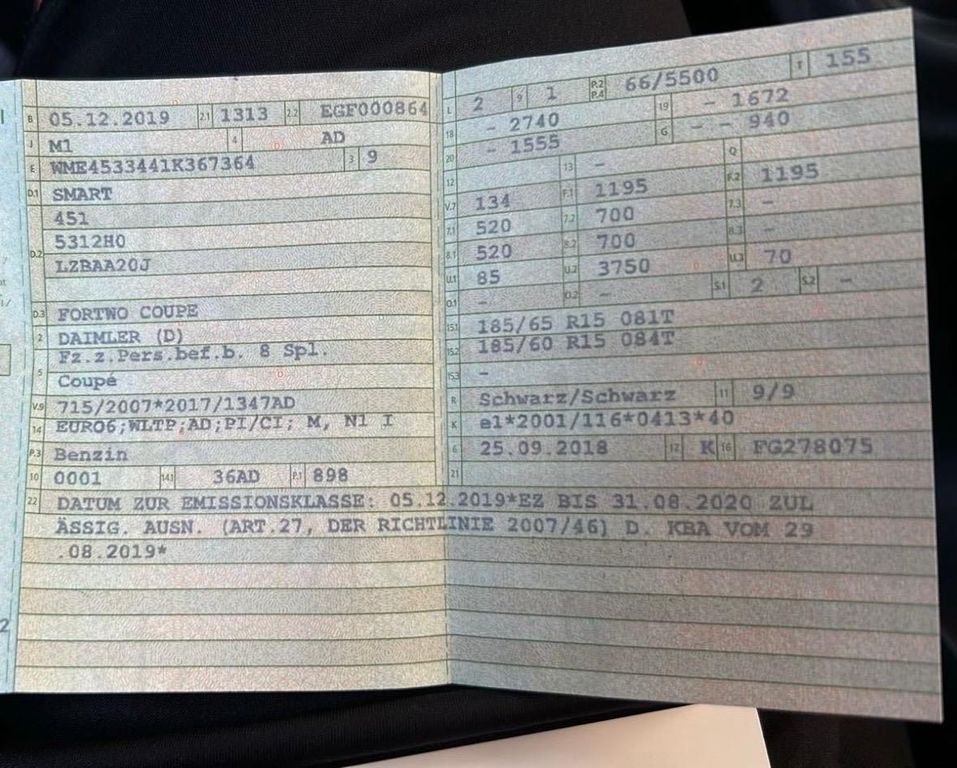 B 05.12.2019 2.1 1313 2.2 EGF000864
J M1 4 AD
E WME4533441K367364 3 9
D.1 SMART
451
D.2 5312H0
LZBAA20J
D.3 FORTWO COUPE
2 DAIMLER (D)
Fz.z.Pers.bef.b. 8 Spl.
5 Coupé
V.9 715/2007*2017/1347AD
14 EURO6;WLTP;AD;PI/CI; M, N1 I
P.3 Benzin
10 0001 14.1 36AD P.1 898
L 2 9 1 P.2 P.4 66/5500 T 155
18 - 2740 19 - 1672
20 - 1555 G - - 940
12 13 - Q
V.7 134 F.1 1195 F.2 1195
7.1 520 7.2 700 7.3 -
8.1 520 8.2 700 8.3 -
U.1 85 U.2 3750 U.3 70
O.1 - O.2 - S.1 2 S.2 -
15.1 185/65 R15 081T
15.2 185/60 R15 084T
15.3 -
R Schwarz/Schwarz 11 9/9
K e1*2001/116*0413*40
6 25.09.2018 17 K 16 FG278075
21
22 DATUM ZUR EMISSIONSKLASSE: 05.12.2019*EZ BIS 31.08.2020 ZUL
ÄSSIG. AUSN. (ART.27, DER RICHTLINIE 2007/46) D. KBA VOM 29
.08.2019*